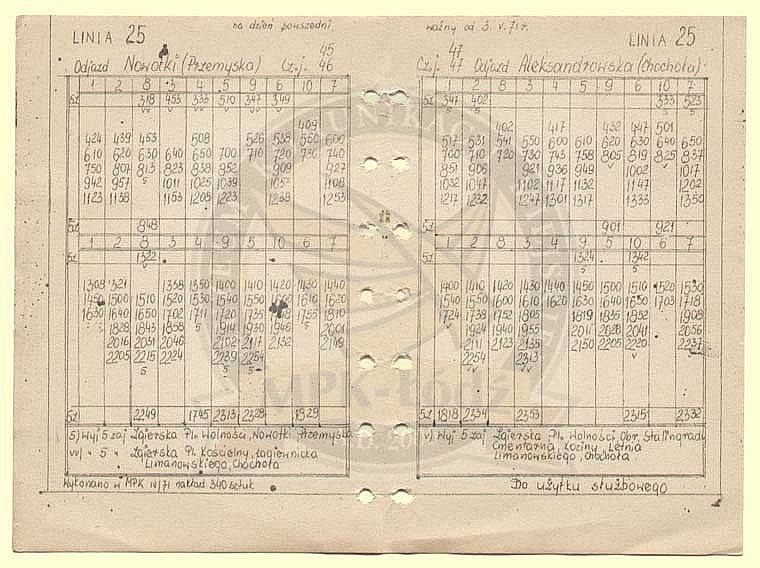 na dzień powszedni
LINIA 25
45
Odjazd Nowotki (Przemyska) Cz.j. 46
1 2 8 3 4 5 9 6 10 7
5z 318 453 333 510 347 349
409
424 439 453 508 526 538 550 600
610 620 630 640 650 700 710 720 730 740
750 807 813 823 838 852 909 927
942 957 1011 1025 1039 1108
1123 1138 1153 1208 1223 1238 1253
5z 848
1 2 8 3 4 9 5 10 6 7
5z 1322
1308 1321 1338 1350 1400 1410 1420 1430 1440
1450 1500 1510 1520 1530 1540 1550 1610 1620
1630 1640 1650 1702 1711 1720 1735 1755 1810
1828 1843 1858 1914 1930 1946 2001
2016 2031 2046 2102 2117 2132 2149
2205 2215 2224 2239 2254
5z 2249 1745 2313 2328 1829
5) Wyj 5 zaj Zgierska Pl. Wolności, Nowotki Przemyska
" 5 " Zgierska Pl. Kościelny, Łagiewnicka
Limanowskiego, Chochoła
Wykonano w MPK IV/71 nakład 340 sztuk
ważny od 3.V.71r.
LINIA 25
47
Cz.j. 47 Odjazd Aleksandrowska (Chochoła)
1 2 8 3 4 5 9 6 10 7
5z 347 402 333 523
402 417 432 447 501
517 531 541 550 600 610 620 630 640 650
700 710 720 730 743 758 805 819 825 837
851 906 921 936 949 1002 1017
1032 1047 1102 1117 1132 1147 1202
1217 1232 1247 1301 1317 1333 1350
5z 901 921
1 2 8 3 4 9 5 10 6 7
5z 1324 1342
1400 1410 1420 1430 1440 1450 1500 1510 1520 1530
1540 1550 1600 1610 1620 1630 1640 1650 1703 1718
1724 1738 1752 1805 1819 1835 1852 1908
1924 1940 1955 2011 2028 2041 2056
2111 2123 2135 2150 2205 2220 2237
2254 2313
5z 1818 2334 2353 2315 2332
v) Wyj 5 zaj Zgierska Pl. Wolności Obr. Stalingradu
Cmentarna, Koziny, Letnia
Limanowskiego, Chochoła
Do użytku służbowego
MPK-Łódź